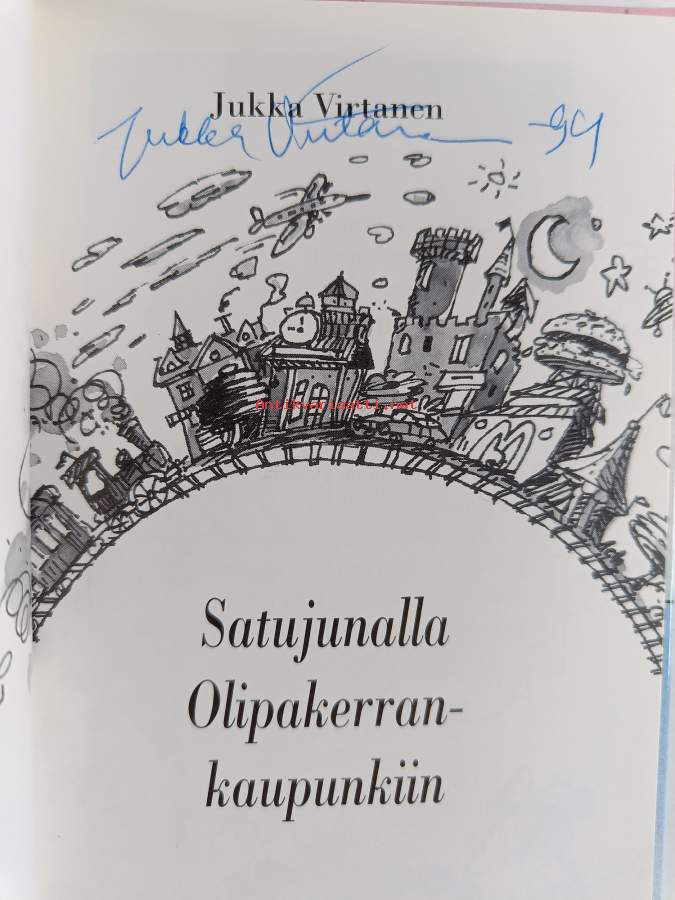 Jukka Virtanen
Jukka Virtanen -94
Antikvariaatti.net
Satujunalla
Olipakerran-
kaupunkiin